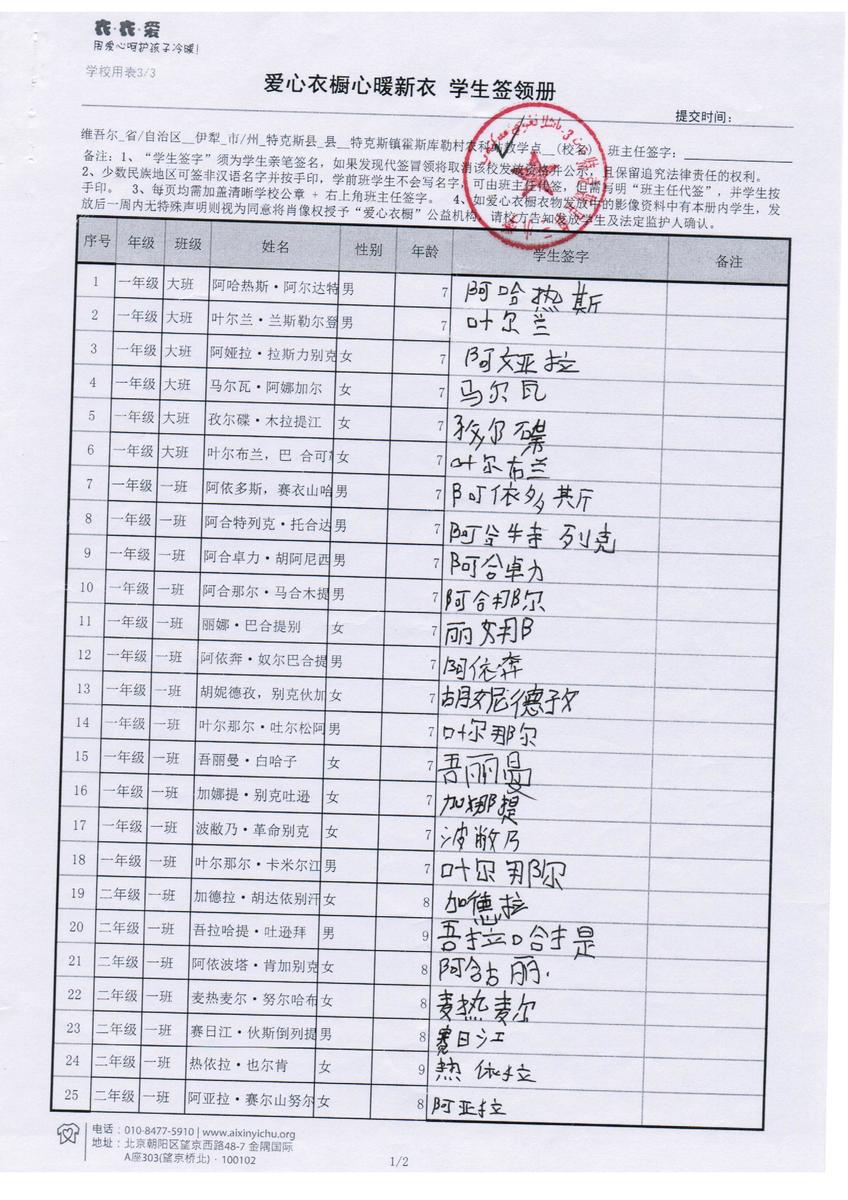 衣·衣·爱
用爱心呵护孩子冷暖!
学校用表3/3
爱心衣橱心暖新衣 学生签领册
提交时间:
维吾尔_省/自治区__伊犁_市/州_特克斯县_县__特克斯镇霍斯库勒村农科站教学点__(校名) 班主任签字:
备注: 1、“学生签字”须为学生亲笔签名,如果发现代签冒领将取消该校发放资格并公示,且保留追究法律责任的权利。
2、少数民族地区可签非汉语名字并按手印,学前班学生不会写名字,可由班主任代签,但需写明“班主任代签”,并学生按
手印。 3、每页均需加盖清晰学校公章 + 右上角班主任签字。 4、如爱心衣橱衣物发放中的影像资料中有本册内学生,发
放后一周内无特殊声明则视为同意将肖像权授予“爱心衣橱”公益机构,请校方告知发放学生及法定监护人确认。
序号 年级 班级 姓名 性别 年龄 学生签字 备注
1 一年级 大班 阿哈热斯·阿尔达特 男 7 阿哈热斯
2 一年级 大班 叶尔兰·兰斯勒尔登 男 7 叶尔兰
3 一年级 大班 阿娅拉·拉斯力别克 女 7 阿娅拉
4 一年级 大班 马尔瓦·阿娜加尔 女 7 马尔瓦
5 一年级 大班 孜尔碟·木拉提江 女 7 孜尔碟
6 一年级 大班 叶尔布兰,巴 合可 女 7 叶尔布兰
7 一年级 一班 阿依多斯,赛衣山哈 男 7 阿依多斯
8 一年级 一班 阿合特列克·托合达 男 7 阿合特列克
9 一年级 一班 阿合卓力·胡阿尼西 男 7 阿合卓力
10 一年级 一班 阿合那尔·马合木提 男 7 阿合那尔
11 一年级 一班 丽娜·巴合提别 女 7 丽娜
12 一年级 一班 阿依奔·奴尔巴合提 男 7 阿依奔
13 一年级 一班 胡妮德孜,别克伙加 女 7 胡妮德孜
14 一年级 一班 叶尔那尔·吐尔松阿 男 7 叶尔那尔
15 一年级 一班 吾丽曼·白哈子 女 7 吾丽曼
16 一年级 一班 加娜提·别克吐逊 女 7 加娜提
17 一年级 一班 波敝乃·革命别克 女 7 波敝乃
18 一年级 一班 叶尔那尔·卡米尔江 男 7 叶尔那尔
19 二年级 一班 加德拉·胡达依别汗 女 8 加德拉
20 二年级 一班 吾拉哈提·吐逊拜 男 9 吾拉哈提
21 二年级 一班 阿依波塔·肯加别克 女 8 阿合古丽.
22 二年级 一班 麦热麦尔·努尔哈布 女 8 麦热麦尔
23 二年级 一班 赛日江·伙斯倒列提 男 8 赛日江
24 二年级 一班 热依拉·也尔肯 女 9 热依拉
25 二年级 一班 阿亚拉·赛尔山努尔 女 8 阿亚拉
电话:010-8477-5910 | www.aixinyichu.org
地址:北京朝阳区望京西路48-7 金隅国际
A座303(望京桥北)·100102
1/2